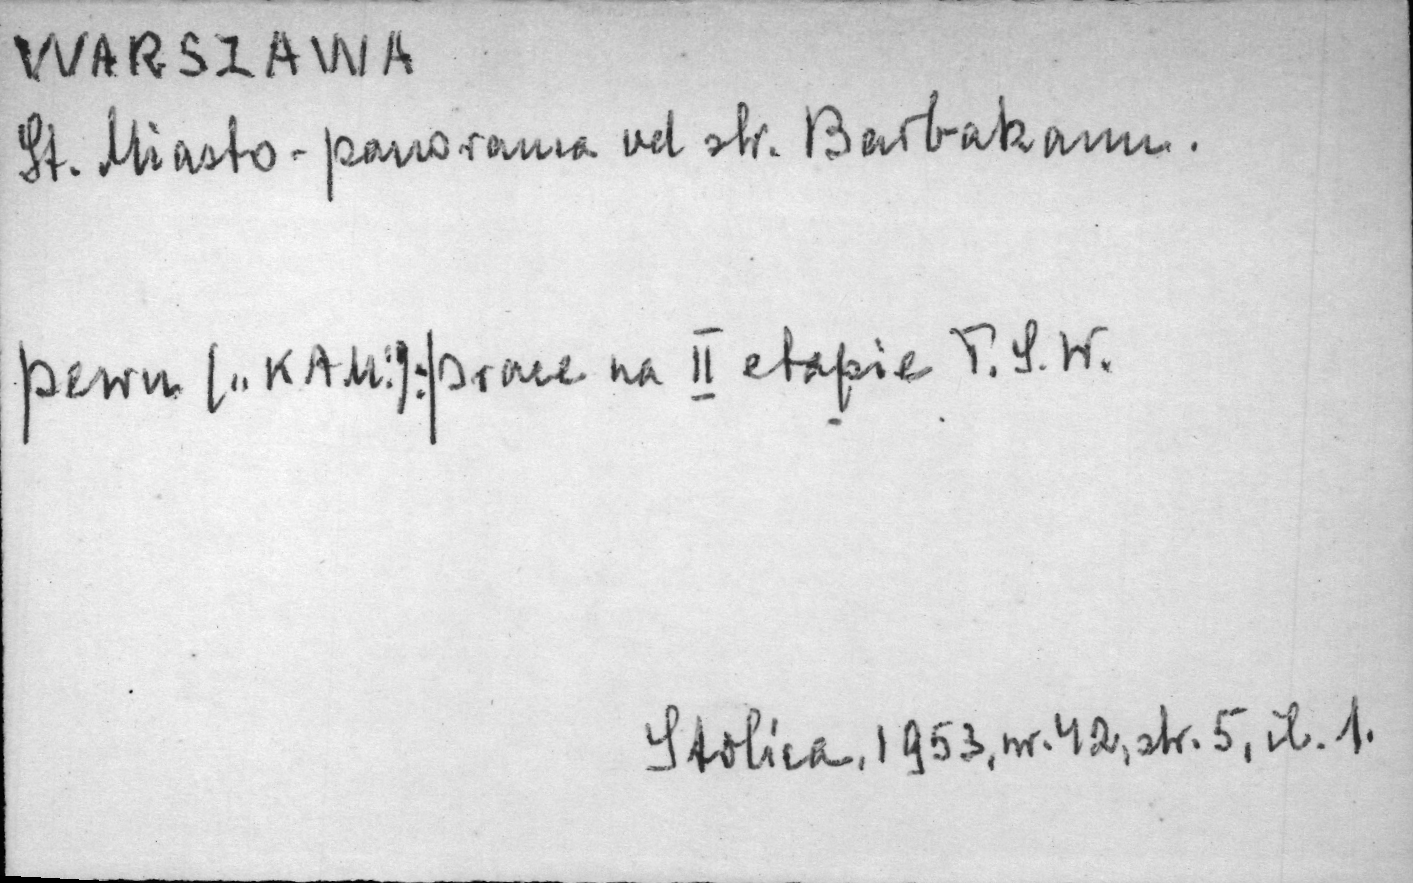 WARSZAWA
St. Miasto - panorama od str. Barbakanu.
("KAM"): prace na II etapie T.S.W.
Stolica, 1953, nr. 42, str. 5, il. 1.